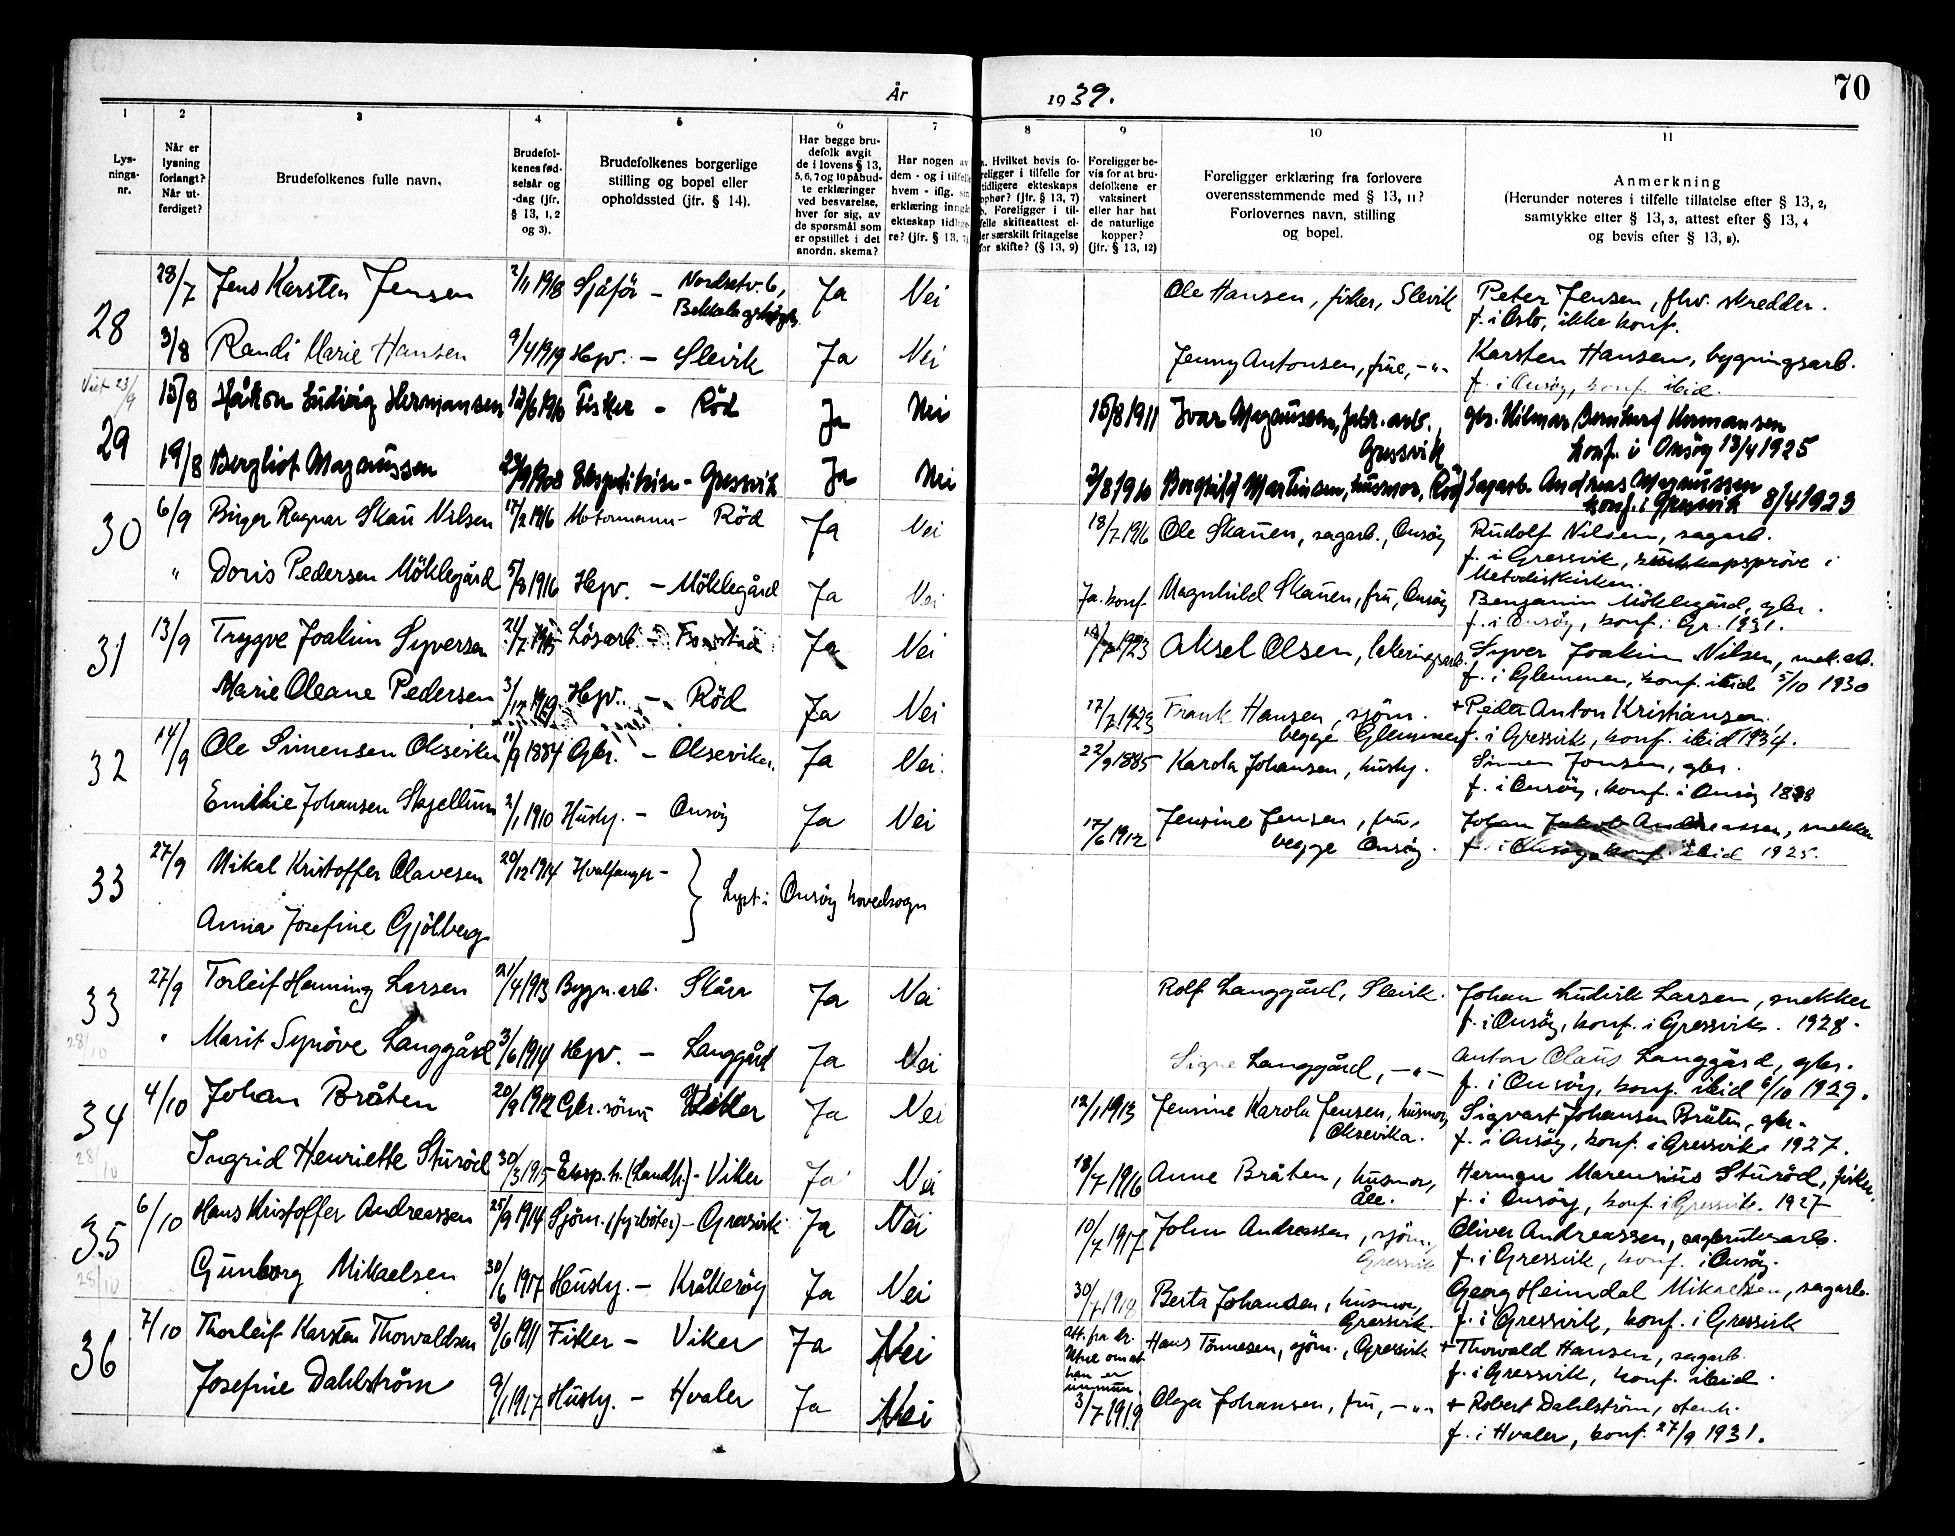 70
År 1939.
1 2 3 4 5 6 7 8 9 10 11
Lys-
nings-
nr.
Når er
lysning
forlangt?
Når ut-
ferdiget?
Brudefolkenes fulle navn.
Brudefol-
kenes fød-
selsår og
-dag (jfr.
§ 13, 1, 2
og 3).
Brudefolkenes borgerlige
stilling og bopel eller
opholdssted (jfr. § 14).
Har begge bru-
defolk avgit
de i lovens § 13,
5, 6, 7 og 10 påbud-
te erklæringer
ved besvarelse,
hver for sig, av
de spørsmål som
er opstillet i det
anordn. skema?
Har nogen av
dem - og i tilfelle
hvem - iflg. sin
erklæring inngått
ekteskap tidlige-
re? (jfr. § 13, 7)
a. Hvilket bevis fo-
religger i tilfelle for
tidligere ekteskaps
ophør? (jfr. § 13, 7)
b. Foreligger i til-
felle skifteattest el-
ler særskilt fritagelse
for skifte? (§ 13, 9)
Foreligger be-
vis for at bru-
defolkene er
vaksinert
eller har hat
de naturlige
kopper?
(jfr. § 13, 12)
Foreligger erklæring fra forlovere
overensstemmende med § 13, 11?
Forlovernes navn, stilling
og bopel.
Anmerkning
(Herunder noteres i tilfelle tillatelse efter § 13, 2,
samtykke efter § 13, 3, attest efter § 13, 4
og bevis efter § 13, 8).
28 28/7 Jens Karsten Jensen 2/11 1918 Sjåför – Nordsetv. 6, Ja Nei Ole Hansen, fisker, Slevik Peter Jensen, fhv. skredder.
f. i Oslo, ikke konf.
3/8 Randi Marie Hansen 9/4 1919 Hgv. – Slevik Ja Nei Jenny Antonsen, frue, –"– Karsten Hansen, bygningsarb.
f. i Onsöy, konf. ibid.
Viet 23/9
29 15/8 Håkon Ludvig Hermansen Fisker – Röd Ja Nei 15/8 1911 Ivar Magnussen, fabr. arb. gbr. Hilmar Bernhard Hermansen
Gressvik konf. i Onsöy 13/4 1925
19/8 Bergliot Magnussen 1908 – Gressvik Ja Nei Borghild Martinsen, husmor, Röd Sagarb. Andreas Magnussen
konf. i Gressvik 8/4 1923
30 6/9 Birger Ragnar Skau Nilsen 17/2 1916 Motormann – Röd Ja Nei 18/7 1916 Ole Skauen, sagarb., Onsöy Rudolf Nilsen, sagarb.
f. i Gressvik, kunskapspröve i
Metodistkirken.
" Doris Pedersen Möklegård 5/8 1916 Hgv. – Möklegård Ja Nei Ja. konf. Magnhild Skauen, fru, Onsöy Benjamin Möklegård, gbr.
f. i Onsöy, konf. i Gr. 1931.
31 13/9 Trygve Joakim Syversen Lösarb. – Ja Nei Aksel Olsen, Syver Joakim Nilsen, mek. arb.
f. i Glemmen, konf. ibid 5/10 1930
Marie Oleane Pedersen 3/12 1919 Hgv. – Röd Ja Nei 17/7 1923 Frank Hansen, sjöm. + Peder Anton Kristiansen
begge Glemmen f. i Gressvik, konf. ibid 1934.
32 14/9 Ole Simensen Oksviken 11/9 1884 Gbr. – Okseviken. Ja Nei. 22/9 1885 Karola Johansen, husby. Simen Jonsen, gbr.
f. i Onsöy, konf. i Onsöy
Emilie Johansen Skjellum 2/1 1910 Husby. – Onsöy Ja Nei 17/6 1912 Jensine Jensen, fru, Johan Jakob Andreassen, snekker
begge Onsöy. f. i Onsöy, konf. ibid 1925.
33 27/9 Mikal Kristoffer Olavesen 20/12 1914 Hvalfanger –
Lyst i Onsöy hovedsogn
Anna Josefine Gjölberg
33 27/9 Torleif Henning Larsen 21/4 1913 Bygn. arb. Skåra Ja Nei Rolf Langgård, Slevik. Johan Ludvik Larsen, snekker
f. i Onsöy, konf. i Gressvik. 1928.
28/10 " Marit Synöve Langgård 3/6 1914 Hgv. – Langgård Ja Nei Signe Langgård, –"– Anton Claus Langgård, gbr.
f. i Onsöy, konf. ibid 6/10 1929.
34 4/10 Johan Bråten 20/9 1912 Gbr. sönn Viker Ja Nei 12/1 1913 Jensine Karola Jensen, husmor, Sigvart Johansen Bråten, gbr.
Oksevika. f. i Onsöy, konf. i Gressvik 1927.
28/10 Ingrid Henriette Sturöd 30/3 1915 Eksp. h. (Landh.) – Viker Ja Nei 18/7 1916 Anne Bråten, husmor, Herman Marensius Sturöd, fisker.
Åle. f. i Onsöy, konf. i Gressvik. 1927
35 6/10 Hans Kristoffer Andreassen 25/9 1914 Sjöm. (fyrböter) – Gressvik Ja Nei 10/7 1917 John Andreassen, sjöm. Oliver Andreassen,
Gressvik f. i Gressvik, konf. i Onsöy.
28/10 Gunborg Mikaelsen 30/6 1917 Husby. – Kråkeröy Ja Nei Berta Johansen, husmor, Georg Heimdal Mikaelsen, sagarb.
Gressvik. f. i Gressvik, konf. i Gressvik
36 7/10 Thorleif Karsten Thorvaldsen 8/6 1911 Fisker – Viker Ja Nei Att. fra dr. Hans Tönnesen, sjöm., Gressvik + Thorvald Hansen, sagarb.
Utne om at
han er
immun. f. i Gressvik, konf. ibid.
Josefine Dahlström 9/1 1917 Husby. – Hvaler Ja Nei 3/7 1919 Olga Johansen, fru, –"– + Robert Dahlström, stenh.
f. i Hvaler, konf. 27/9 1931.